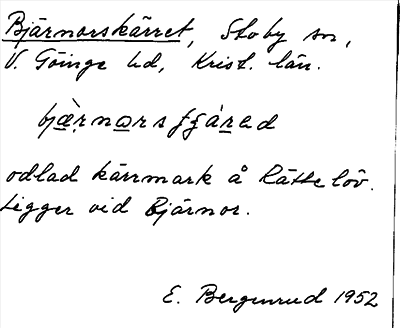 Bjärnorskärret, Stoby sn,
V. Göinge hd, Krist. län.
odlad kärrmark å Rättelöv.
Ligger vid Bjärnor.
E. Bergenrud 1952